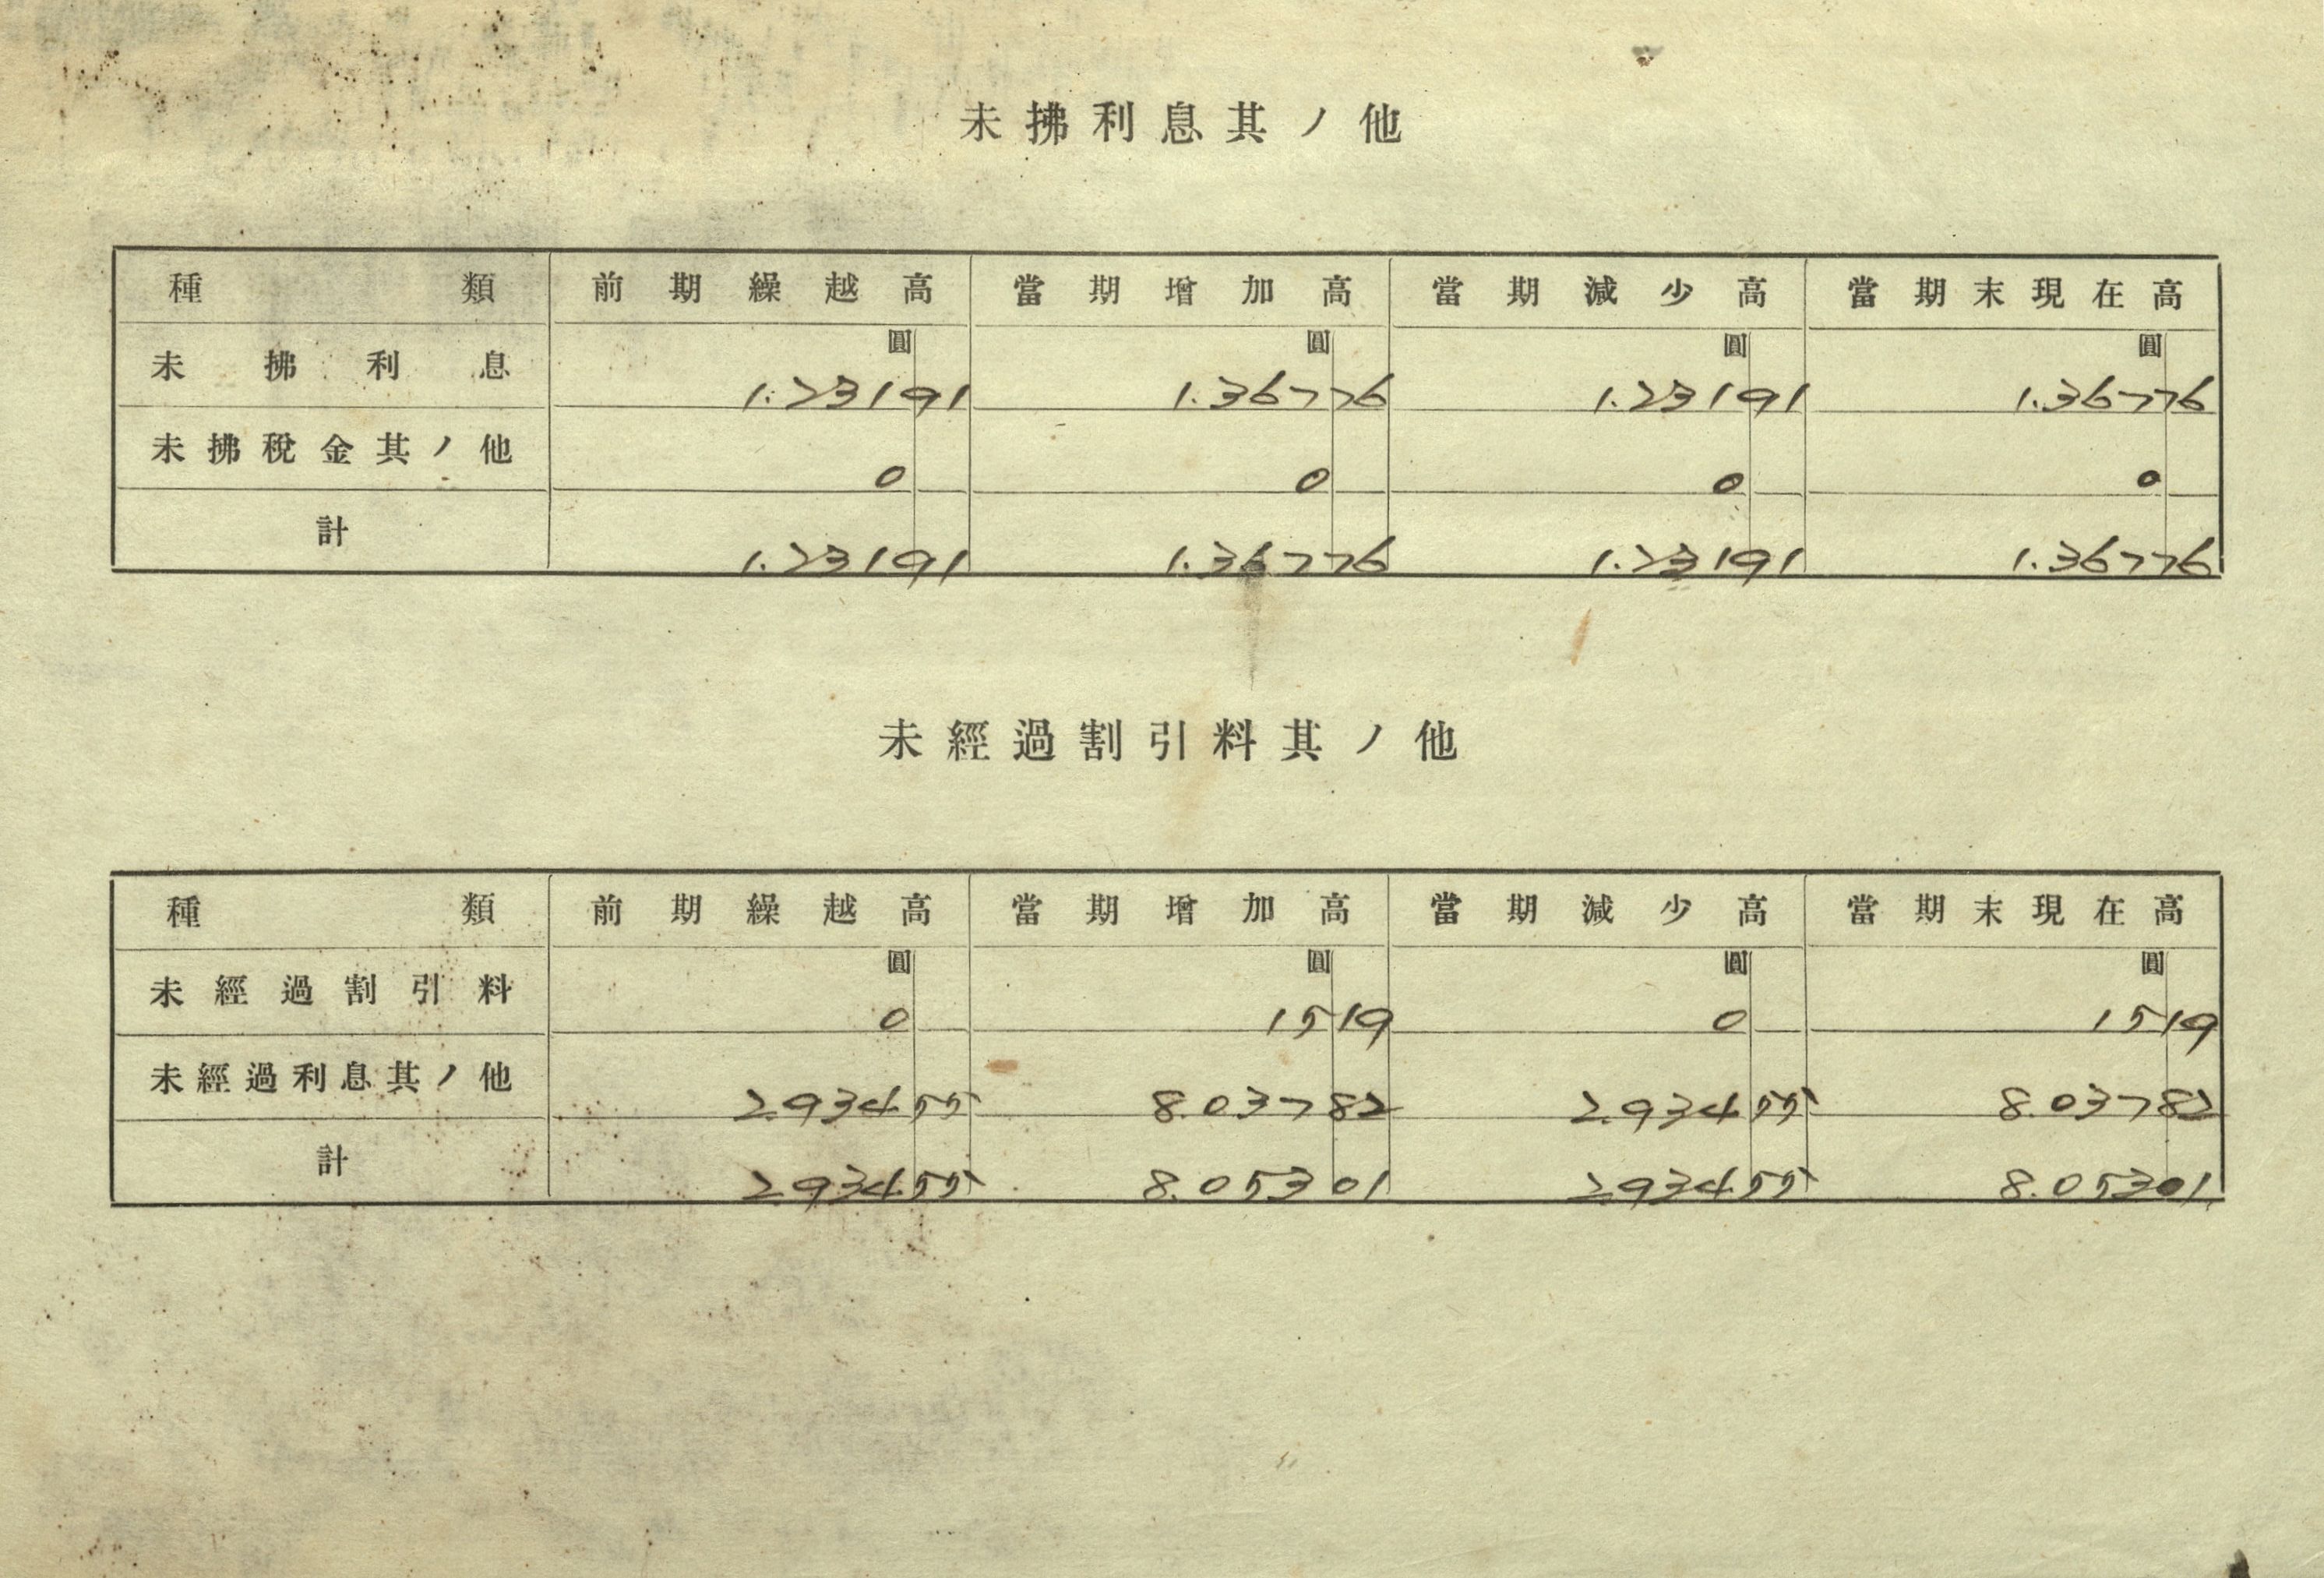 未拂利息其ノ他
種類 前期繰越高 當期增加高 當期減少高 當期末現在高
圓 圓 圓 圓
未拂利息 1.23191 1.36776 1.23191 1.36776
未拂稅金其ノ他 0 0 0 0
計 1.23191 1.36776 1.23191 1.36776
未經過割引料其ノ他
種類 前期繰越高 當期增加高 當期減少高 當期末現在高
圓 圓 圓 圓
未經過割引料 0 1519 0 1519
未經過利息其ノ他 2.93455 8.03782 2.93455 8.03782
計 2.93455 8.05301 2.93455 8.05301